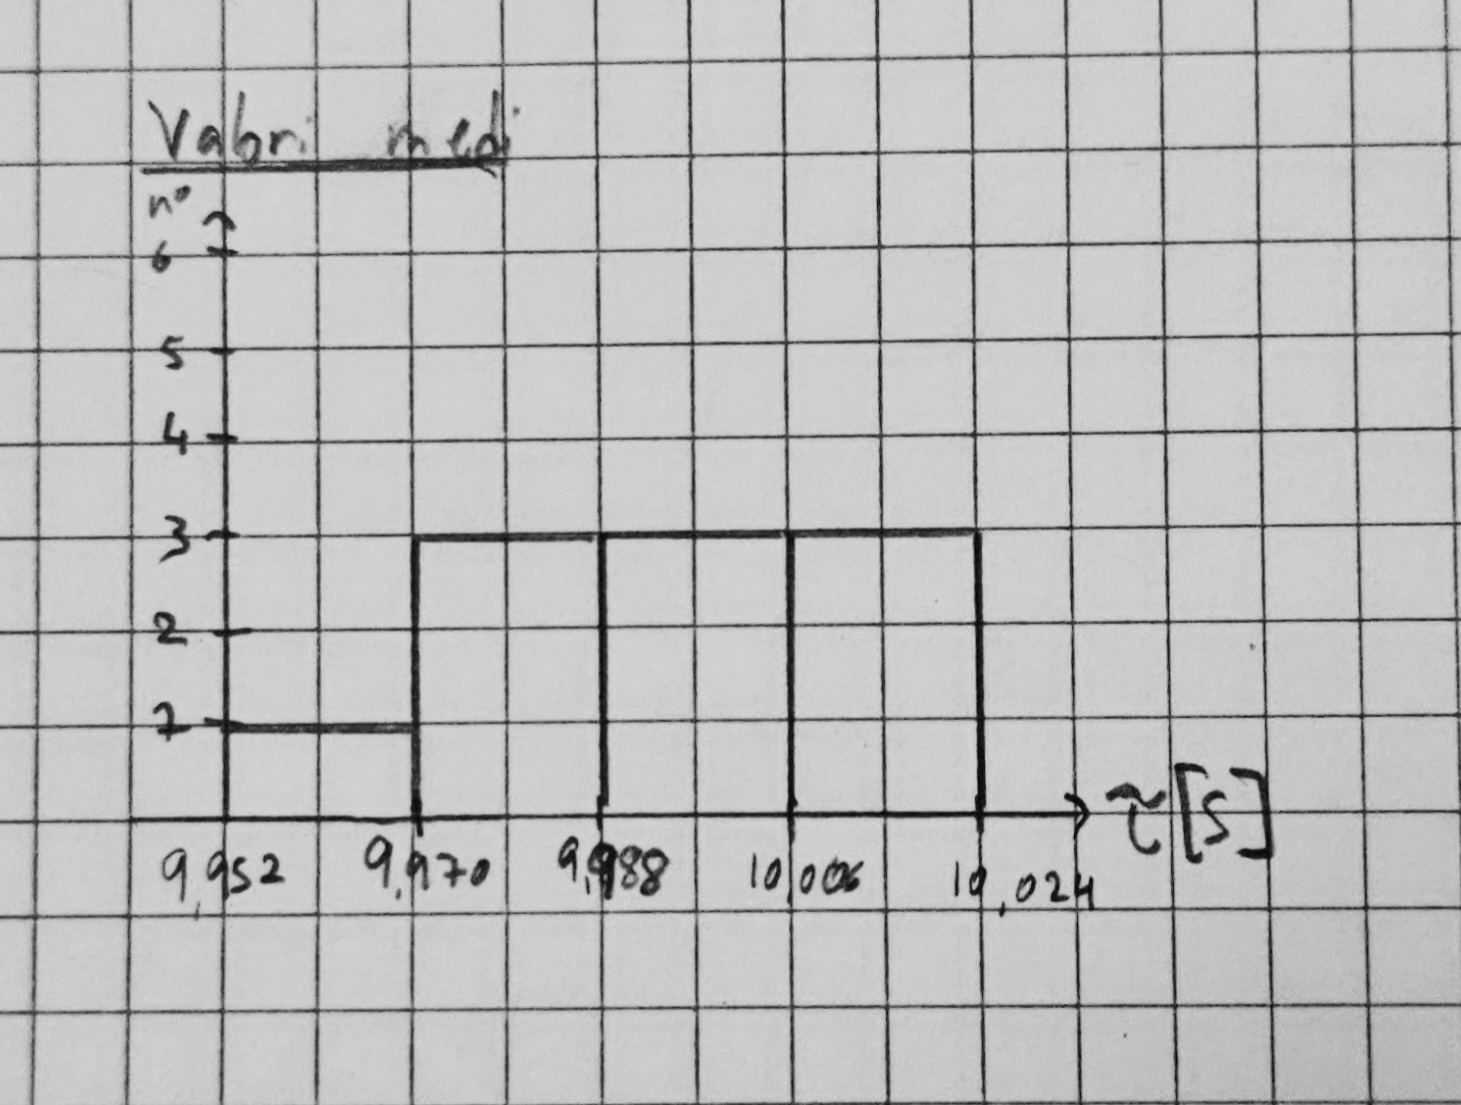 Valori medi
n°
6
5
4
3
2
1
9,952 9,970 9,988 10,006 10,024 τ [s]